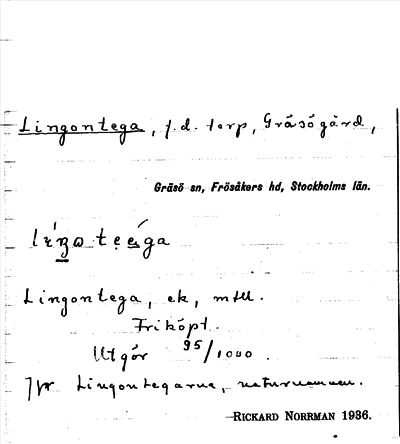 Lingontega, f.d. torp, Gräsögård,
Gräsö sn, Frösåkers hd, Stockholms län.
Lingontega, ek, mtl.
Friköpt.
Utgör 95/1000.
Jfr Lingontegarne, naturnamnen.
RICKARD NORRMAN 1936.